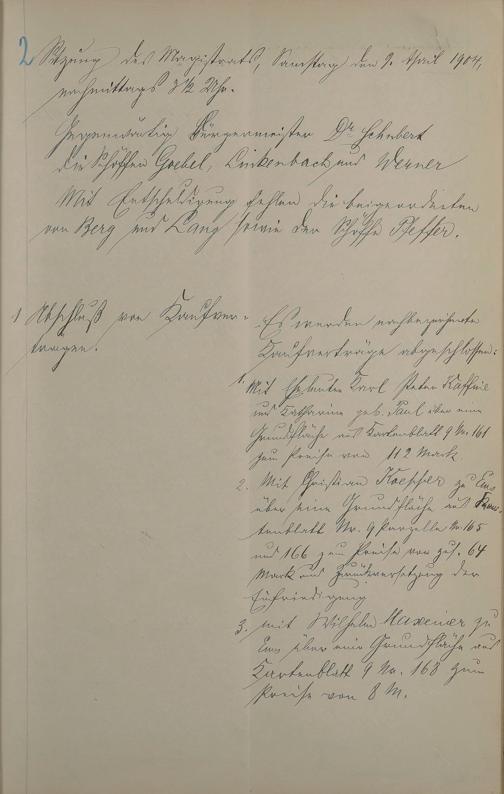 2
Sitzung des Magistrats, Samstag den 9. April 1904,
nachmittags 3½ Uhr.
Gegenwärtig Bürgermeister Dr Schubert
die Schöffen Goebel, Linkenbach und Werner
Mit Entschuldigung fehlen die beigeordneten
von Berg und Lang sowie der Schöffe Pfeffer.
1 Abschluß von Kaufver-
trägen.
Es werden nachbezeichnete
Kaufverträge abgeschlossen:
1. Mit Eheleuten Karl Peter
und Katharine geb. Paul über eine
Grundfläche aus Kartenblatt 9 Nr. 161
zum Preise von 112 Mark.
2. Mit Christian zu Ems
über eine Grundfläche aus Kar-
tenblatt Nr. 9 Parzelle Nr. 165
und 166 zum Preise von zus. 64
Mark und Zurückversetzung der
Einfriedigung
3. mit Wilhelm Maxeiner zu
Ems über eine Grundfläche aus
Kartenblatt 9 Nr. 168 zum
Preise von 8 M.